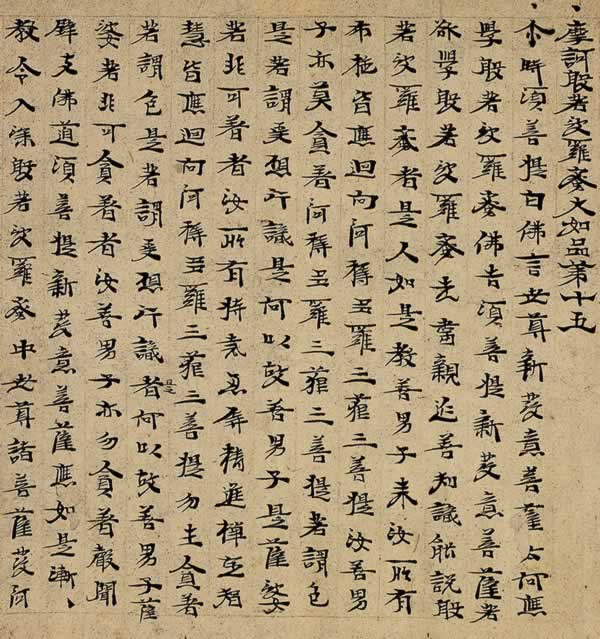 摩訶般若波羅蜜大如品第十五
尒時須菩提白佛言世尊新發意菩薩云何應
學般若波羅蜜佛告須菩提新發意菩薩若
欲學般若波羅蜜先當親近善知識能說般
若波羅蜜者是人如是教善男子来汝所有
布施皆應迴向阿耨多羅三藐三菩提汝善男
子亦莫貪著阿耨多羅三藐三菩提若謂色
是若謂受想行識是何以故善男子是薩婆
若非可著者汝所有持戒忍辱精進禪定智
慧皆應迴向阿耨多羅三藐三菩提勿生貪著
若謂色是若謂受想行識是者何以故善男子薩
婆若非可貪著者汝善男子亦勿貪著聲聞
辟支佛道須菩提新發意菩薩應如是漸〻
教令入深般若波羅蜜中世尊諸菩薩發阿